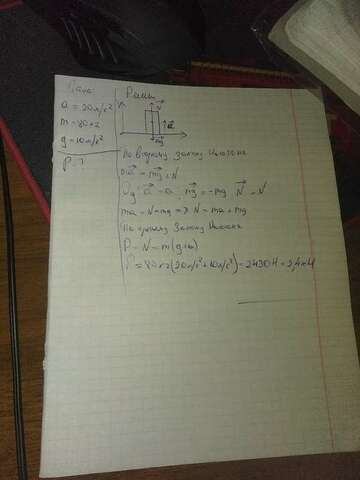 Дано:
a = 20 м/с²
m = 80 кг
g = 10 м/с²
P - ?
Реш
N
a
mg
По второму закону Ньютона
ma = mg + N
Oy: a = a, mg = -mg, N = N
ma = N - mg => N = ma + mg
По третьему Закону Ньютона
P = N = m(g+a)
P = 80 кг (20 м/с² + 10 м/с²) = 2430 Н = 2,4 кН